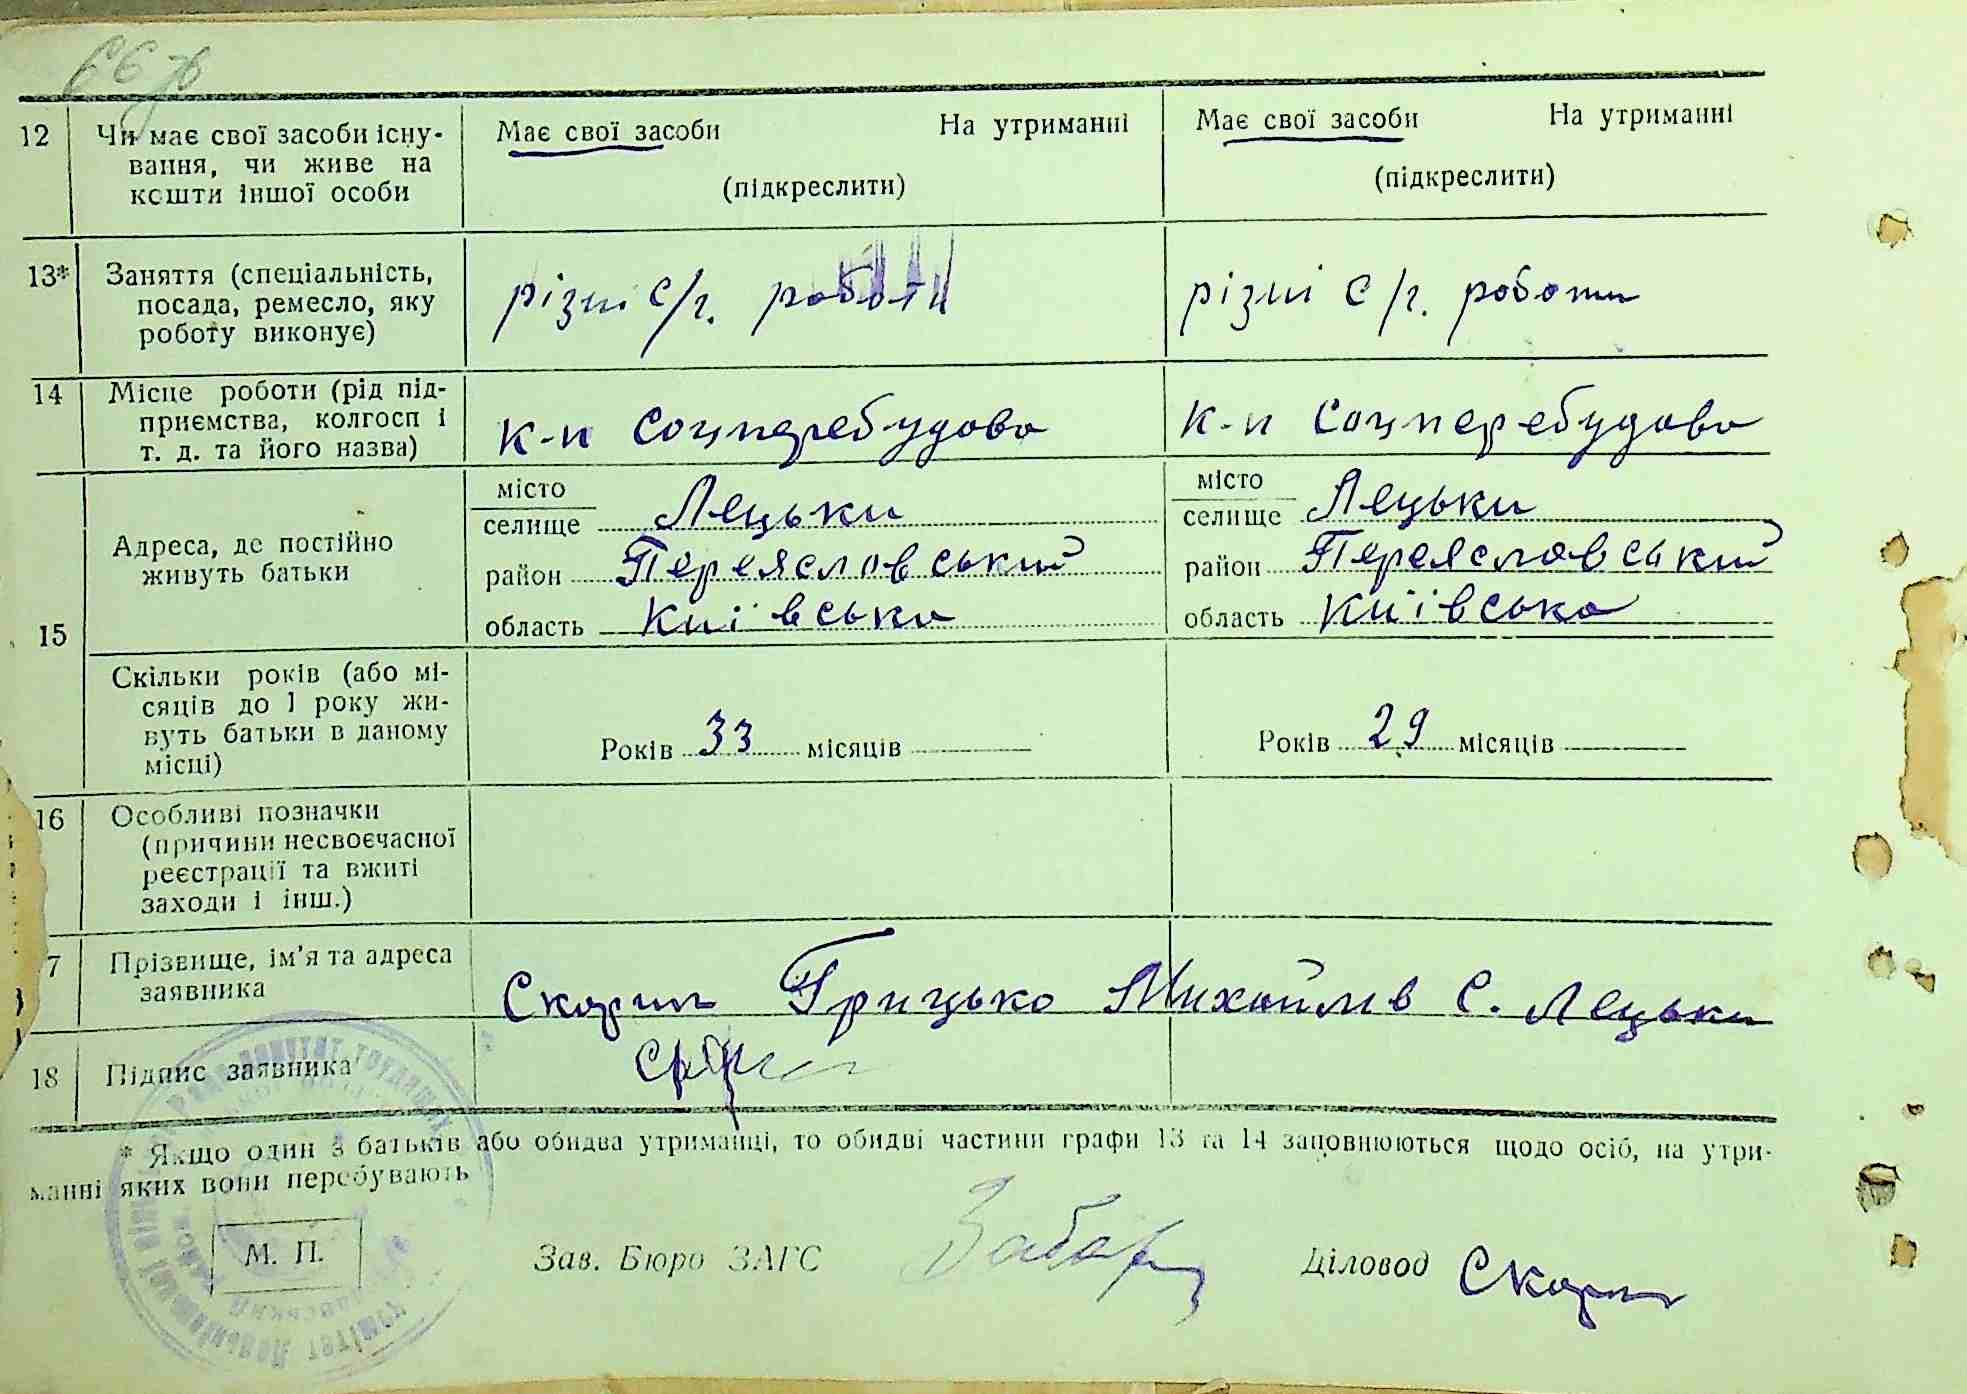 66 зв
12 Чи має свої засоби існу-
вання, чи живе на
кошти іншої особи
Має свої засоби На утриманні
(підкреслити)
Має свої засоби На утриманні
(підкреслити)
13* Заняття (спеціальність,
посада, ремесло, яку
роботу виконує)
різні с/г. роботи
різні с/г. роботи
14 Місце роботи (рід під-
приємства, колгосп і
т. д. та його назва)
к-п Соцперебудова
к-п Соцперебудова
15 Адреса, де постійно
живуть батьки
місто
селище Лецьки
район Переяславський
область Київська
місто
селище Лецьки
район Переяславський
область Київська
Скільки років (або мі-
сяців до 1 року жи-
вуть батьки в даному
місці)
Років 33 місяців
Років 29 місяців
16 Особливі позначки
(причини несвоєчасної
реєстрації та вжиті
заходи і інш.)
7 Прізвище, ім'я та адреса
заявника
Скорик Грицько Михайлів с. Лецьки
18 Підпис заявника
* Якщо один з батьків або обидва утриманці, то обидві частини графи 13 та 14 заповнюються щодо осіб, на утри-
манні яких вони перебувають
М. П. Зав. Бюро ЗАГС Діловод Скорик